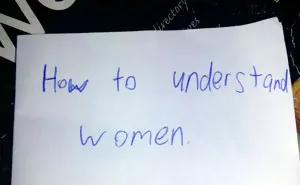 directory
How to understand
women.